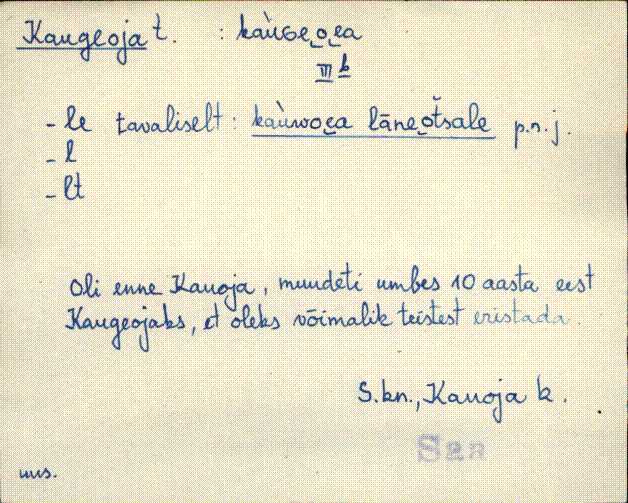 Kaugeoja t. : kàuɢeo̬e̬a
III b
-le tavaliselt: kàuwoe̬a lāne̬otšale p.n.j.
-l
-lt
Oli enne Kauoja, muudeti umbes 10 aasta eest
Kaugeojaks, et oleks võimalik teistest eristada
S.kn., Kauoja k.
San
uus.